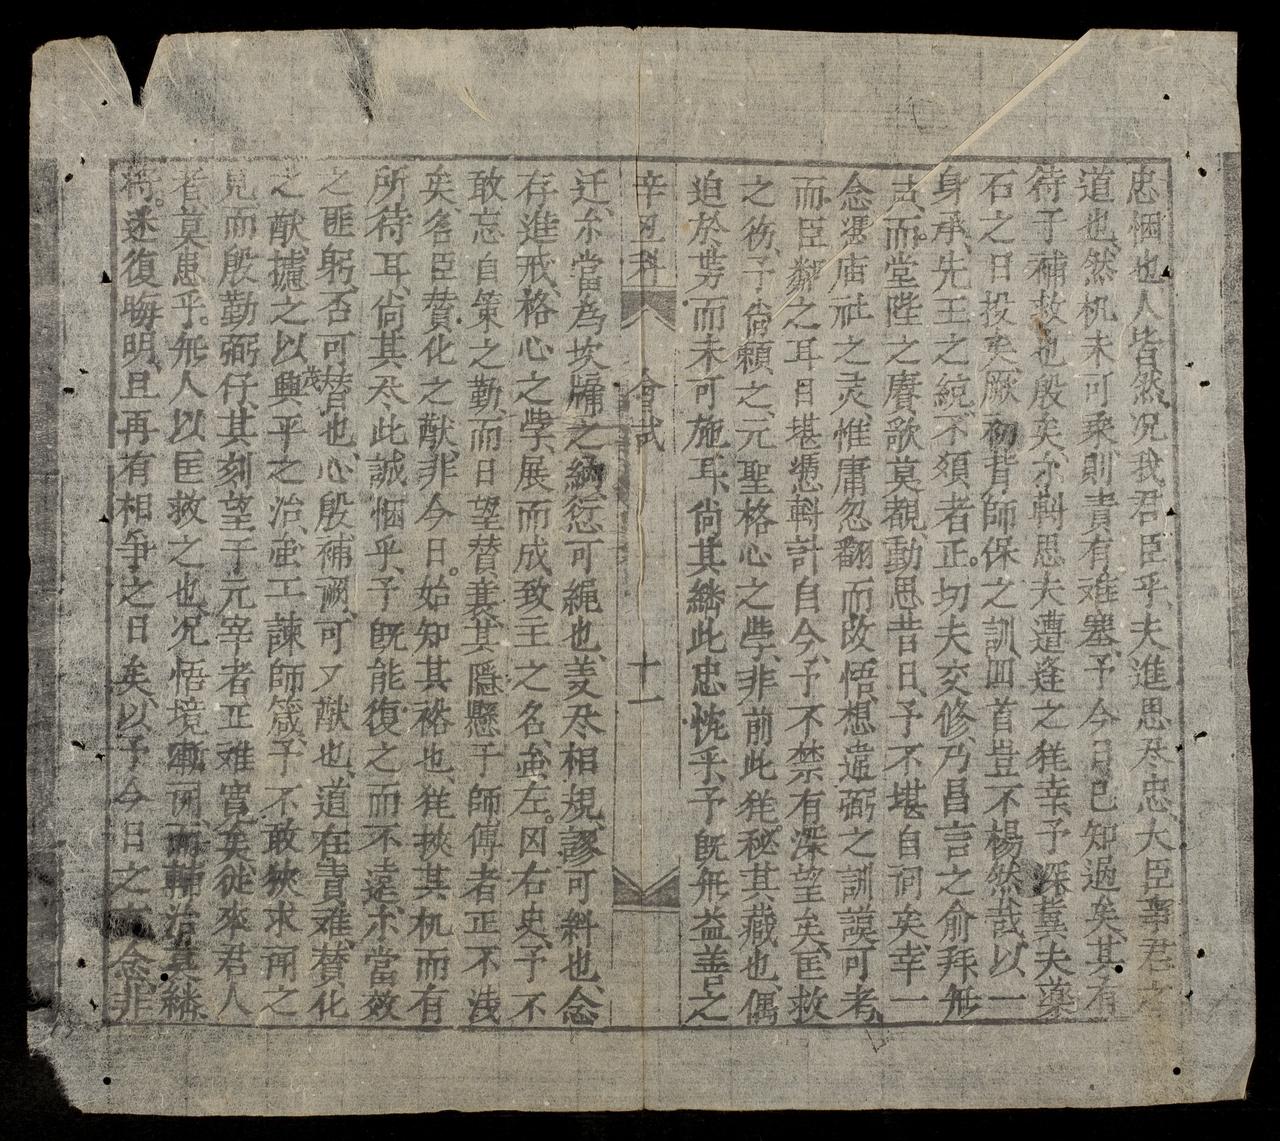 忠悃也人皆然况我君臣乎夫進思尽忠大臣事君之
道也然机未可乘則責有难塞予今日已知過矣其有
待于補救也殷矣尒斟思夫遭逢之㹵幸予深冀夫藥
石之日投矣厥初背師保之訓四首豈不楊然哉以一
身承先王之統不須者正切夫交修乃昌言之俞拜無
聞而堂陛之賡歌莫覩動思昔日予不堪自问矣幸一
念憑庙社之灵惟庸忽翻而改悟想遺弼之訓謨可考
而臣鄰之耳目堪憑斟計自今予不禁有深望矣匡救
之㣲予尚頼之元聖格心之學非前此㹵秘其藏也偶
迫於势而未可施耳尚其繼此忠忱乎予既無益善之
辛丑科 會試 十一
迁尒當為坎牖之納愆可繩也爰尽相規謬可糾也念
存進戒格心之學展而成致主之名虽左囙右史予不
敢忘自策之勤而日望賛襄其隱懸于師傅者正不浅
矣名臣賛化之猷非今日始知其裕也㹵挾其机而有
所待耳尚其尽此誠悃乎予既能復之而不遠尒當效
之匪躬否可替也心殷補闕可又猷也道在責难賛化
之猷攄之以興平之治虽工諫師箴予不敢狹求闻之
見而殷勤弼仔其刻望于元宰者正难寛矣從來君人
者莫患乎無人以匡救之也况悟境 而輔治其繼
将迷復晦明且再有相争之日矣以予今日之 念非
茂